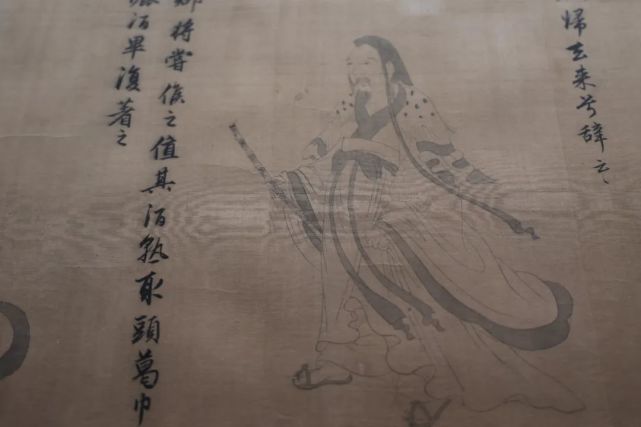 歸去来兮辭云々
將嘗候之值其酒熟取頭葛巾
酒畢復著之